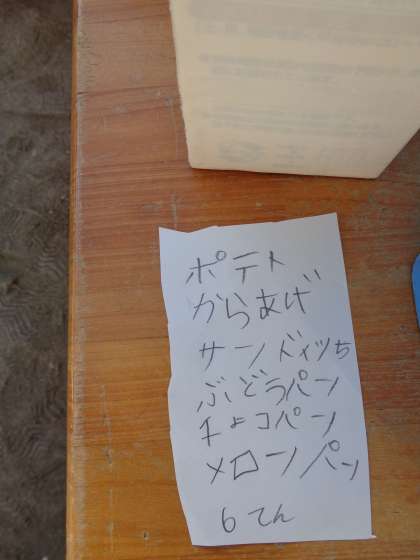 ポテト
からあげ
サーノドイッち
ぶどうパン
チョコパン
メローンパン
6てん